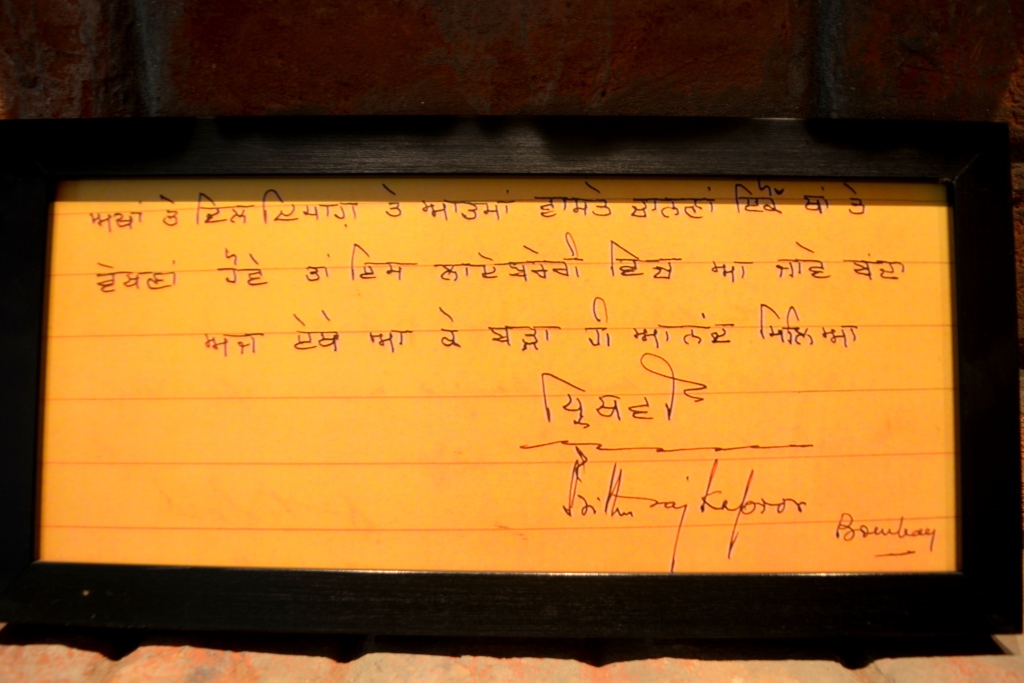 ਅਖਾਂ ਤੇ ਦਿਲ ਦਿਮਾਗ਼ ਤੇ ਆਤਮਾਂ ਵਾਸਤੇ ਚਾਨਣਾਂ ਇਕੋ ਥਾਂ ਤੇ
ਵੇਖਣਾਂ ਹੋਵੇ ਤਾਂ ਇਸ ਲਾਏਬਰੇਰੀ ਵਿਚ ਆ ਜਾਵੇ ਬੰਦਾ
ਅਜ ਏਥੇ ਆ ਕੇ ਬੜਾ ਹੀ ਆਨੰਦ ਮਿਲਿਆ
ਪ੍ਰਿਥਵੀ
Prithviraj Kapoor
Bombay